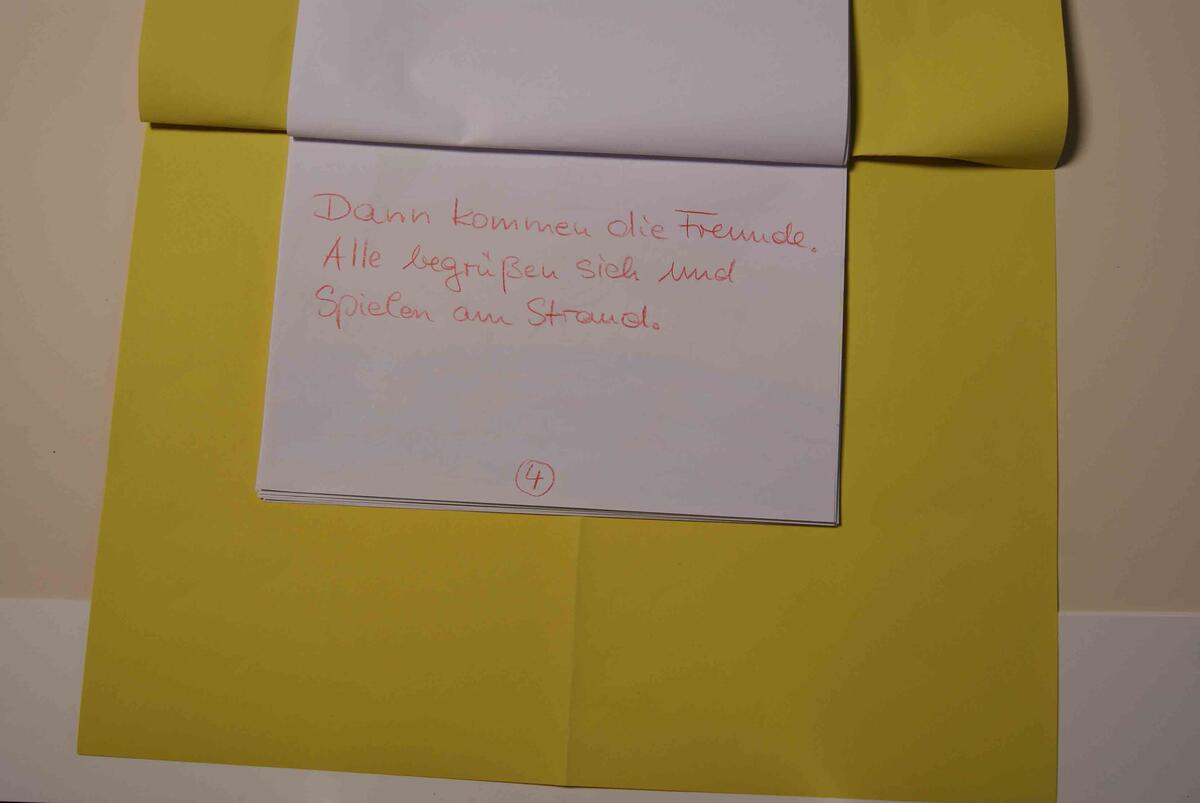 Dann kommen die Freunde.
Alle begrüßen sich und
Spielen am Strand.
4